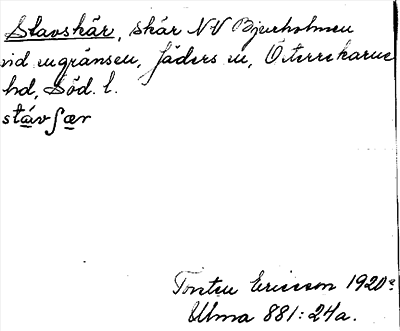 Stavskär, skär NV Bjurholmen
vid ugränsen, Jäders u, Österrekarne
hd, Söd. l.
stávſær
Torsten Ericsson 1920
Ulma 881:24a.